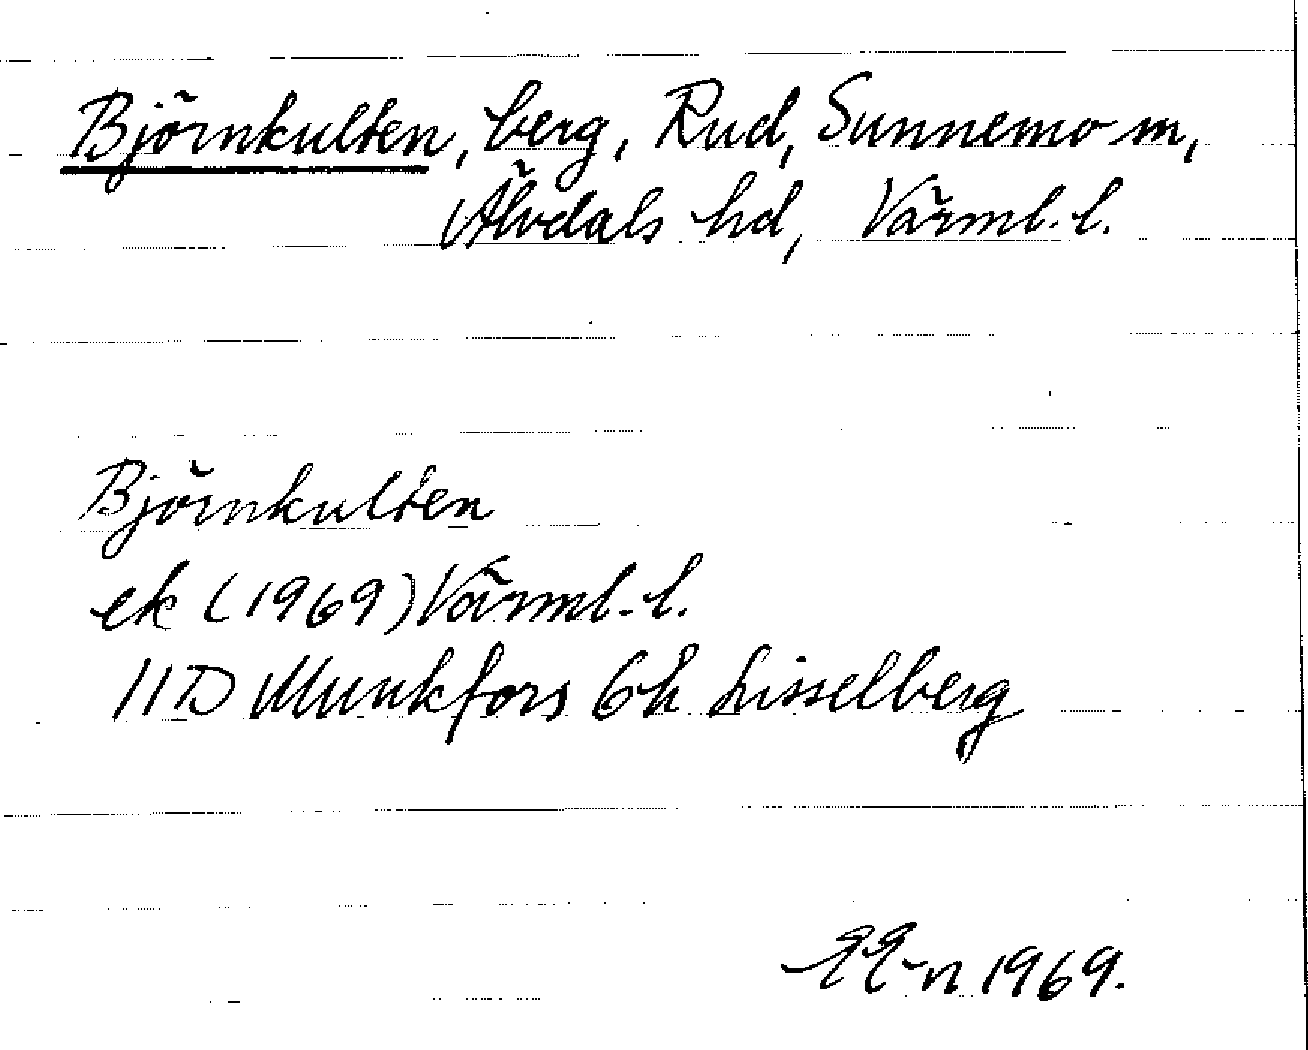 Björnkulten, berg, Rud, Sunnemo sn,
Älvdals hd, Värml. l.
Björnkulten
ek (1969) Värml. l.
11D Munkfors 6h Lisselberg
1969.